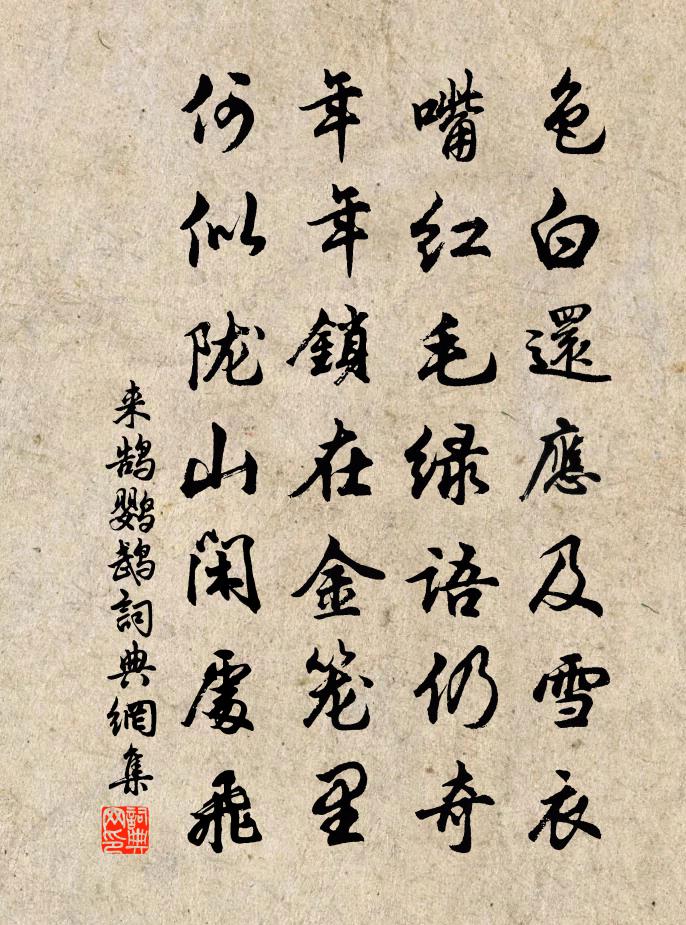 色白還應及雪衣
嘴红毛绿語仍奇
年年鎖在金笼里
何似陇山闲處飛
来鹄鹦鹉詞典網集
詞典网印